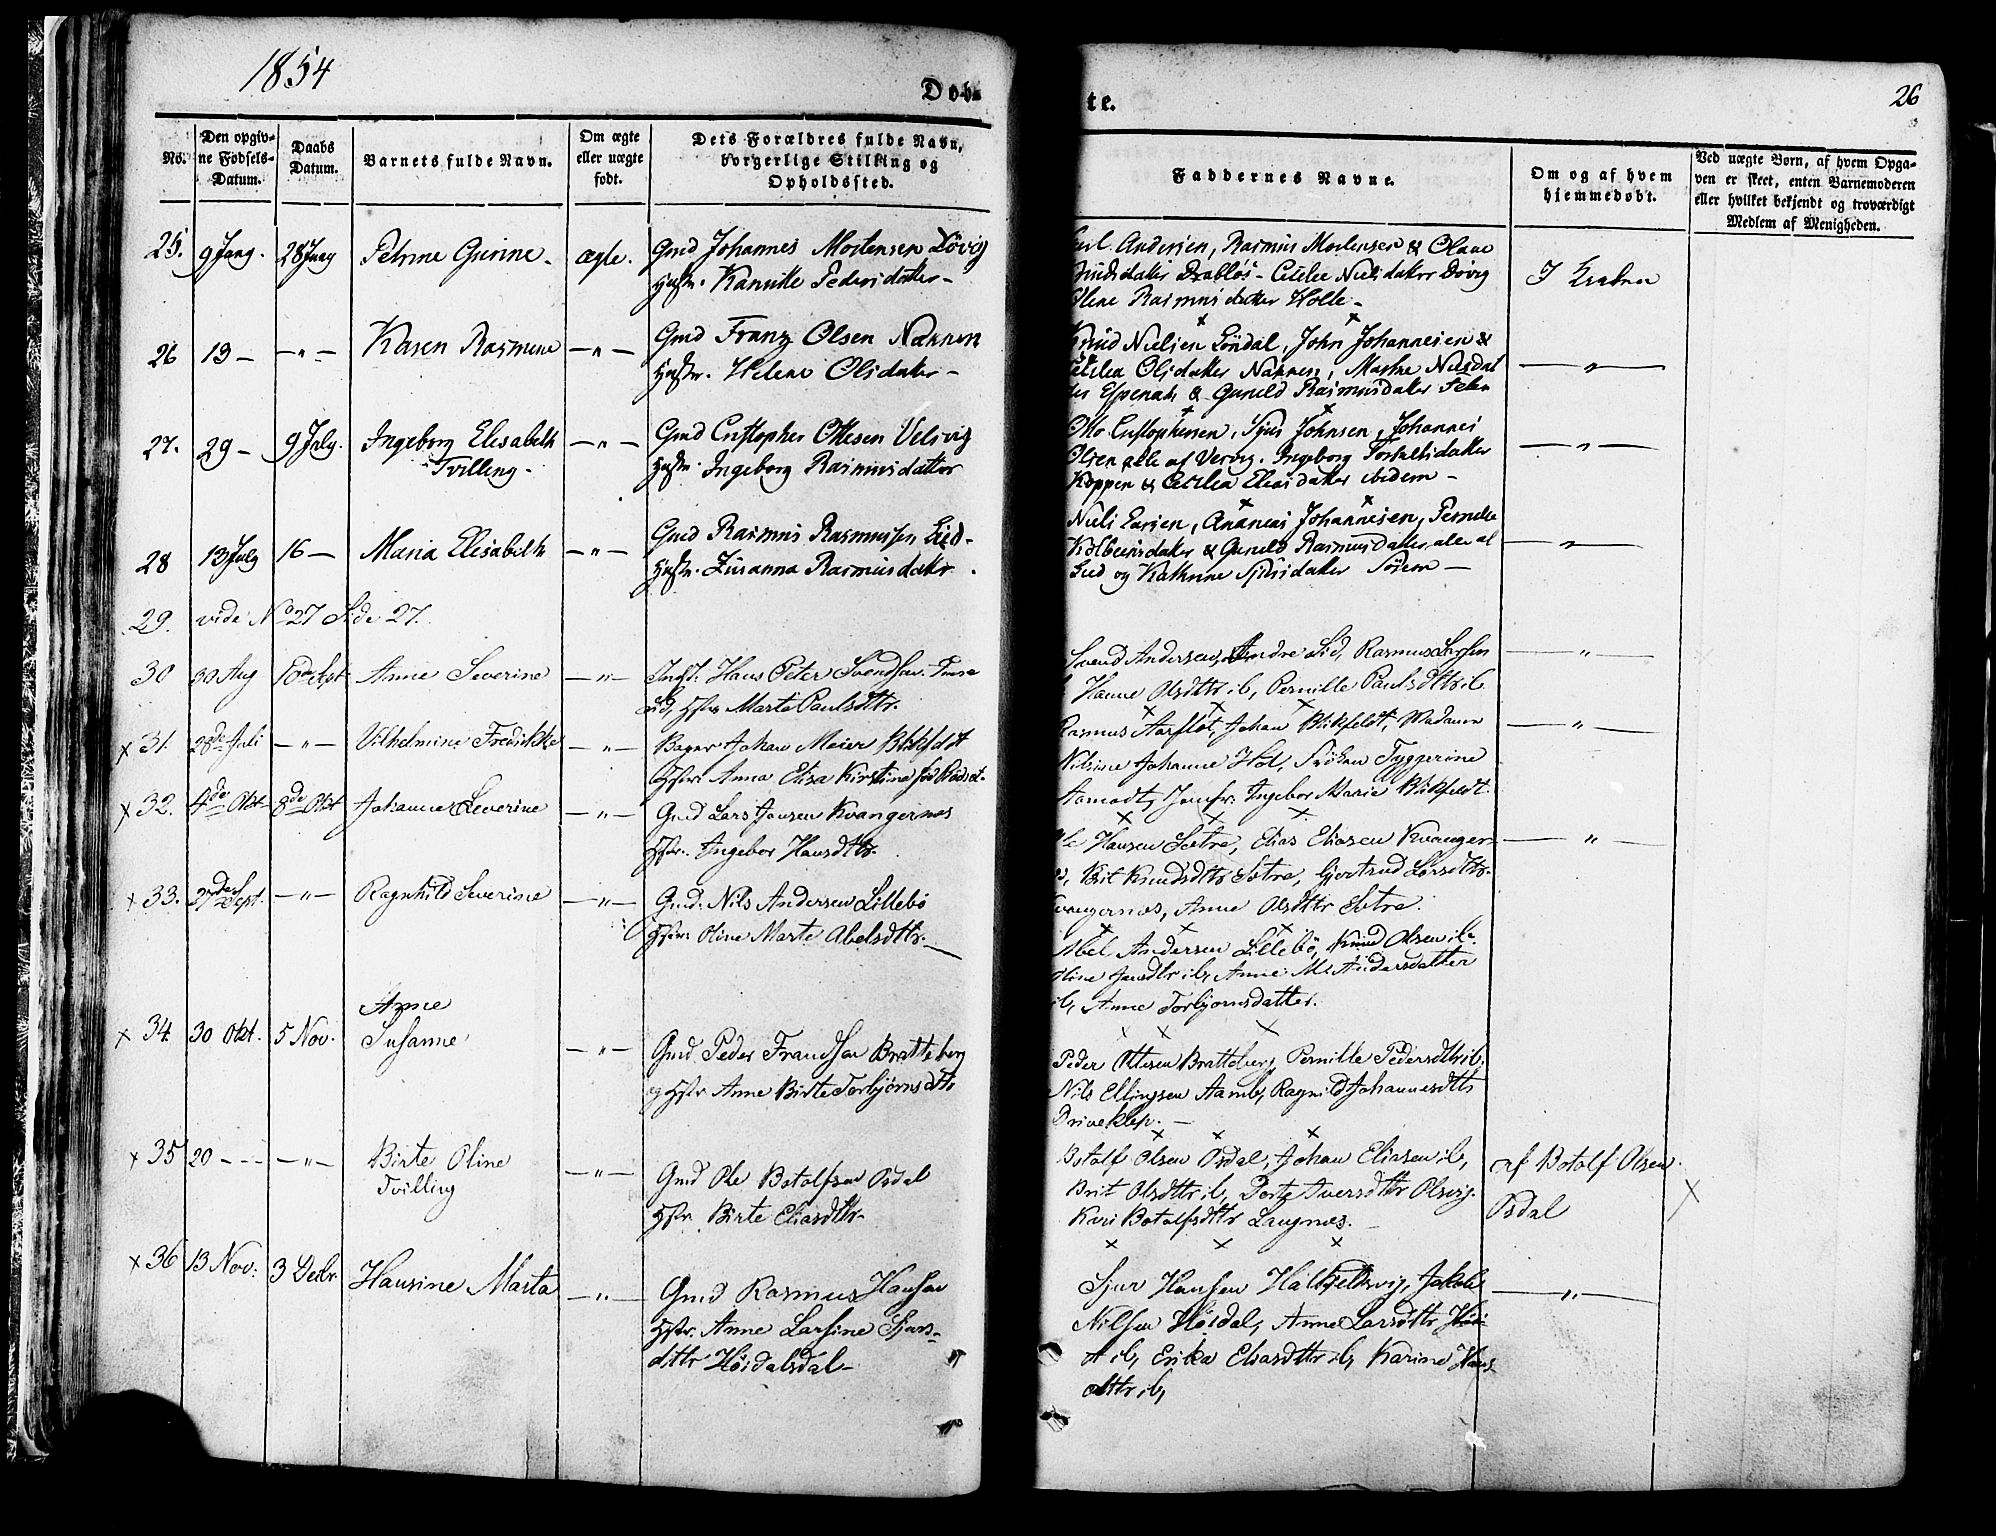 1854
Døb-
te.
26
No.
Den opgiv-
ne Fødsels-
Datum.
Daabs
Datum.
Barnets fulde Navn.
Om ægte
eller uægte
født.
Dets Forældres fulde Navn,
borgerlige Stilling og
Opholdssted.
Faddernes Navne.
Om og af hvem
hjemmedøbt.
Ved uægte Børn, af hvem Opga-
ven er skeet, enten Barnemoderen
eller hvilket bekjendt og troværdigt
Medlem af Menigheden.
25. 9 Juny. 28 Juny Petrine Gurine. ægte. Gmd Johannes Mortensen Løvig
Hustr. Pedersdatter
Andersen, Rasmus Mortensen & Olave
Drabløs - Nielsdatter
Rasmusdatter Holle
I Kirken
26 13 — — " — Karen Rasmine — " — Gmd Franz Olsen Næknen
Hustr. Helene Olsdatter
Knud Nielsen Løndal, John Johannesen &
Olsdatter
Espenak, & Gunild Rasmusdatter
— " —
27. 29 — 9 July. Ingeborg Elisabeth — " — Gmd Cristopher Ottesen Velsvig
Tvilling. Hustr. Ingeborg Rasmusdatter
Otto Cristophersen, Sjur Johnsen, Johannes
Olsen alle af Ingeborg
& Cecilia Eliasdatter ibidem
— " —
28 13 July 16 — Maria Elisabeth — " — Gmd Rasmus Rasmussen Lied.
Hustr. Zusanna Rasmusdatter.
Niels Larsen, Ananias Johannesen, Pernille
Kolbeinsdatter & Gunild Rasmusdatter, alle af
Lied og Kathrine Sjursdatter
— " —
29. vide No 27 Side 27.
30 30 Aug 10de Sept Anne Severine — " — Indst. Hans Peter Svendsen
Lid, Hstr Marte Paulsdttr.
Svend Andersen, Andre Lid, Rasmus Larsen
Hanne Olsdttr ib, Pernille Paulsdttr ib
— " —
x 31. 28de Juli — " — Vilhelmine Fredrikke — " — Bager Johan Meier Blikfeldt
Hstr: Anna Elisa Kirstine fød Rødset.
Rasmus Aarflot, Johan Blikfeldt, Madame
Nilsine Johanne Hol, Frøken Tyggerine
Aamodt, Jomfr. Ingebor Marie Blikfeldt.
— " —
x 32. 4de Okt 8de Okt Johanne Severine — " — Gmd Lars Jonsen Kvangernes
Hstr. Ingebor Hansdttr.
Ole Hansen Sætre, Elias Eliasen Kvanger-
Brit Knudsdttr Sætre, Gjertrud Larsdttr.
Kvangernæs, Anne Olsdttr Sætre.
— " —
x 33. 27de Sept. — " — Ragnhild Severine — " — Gmd: Nils Andersen Lillebø
Hstr: Oline Marte Abelsdttr.
Abel Andersen Lillebø, Knud Olsen ib.
Oline Jonsdttr ib, Anne M. Andersdatter
ib, Anne Torbjørnsdatter.
x 34. 30 Okt. 5 Nov. Anne
Susanne — " — Gmd Peder Frandsen Bratteberg
og Hstr Anne Birte Torbjørnsdttr
Peder Ottesen Bratteberg, Pernille Pedersdttr ib.
Nils Ellingsen Aamb, Ragnild Johannesdttr
Driveklep.
x 35 20 — — " — Birte Oline
Tvilling — " — Gmd Ole Botolfsen Osdal
Hstr Birte Eliasdttr.
Botolf Olsen Osdal, Johan Eliasen ib,
Brit Olsdttr ib, Dorte Iversdttr Olsvig.
Kari Botolfsdttr Laugnæs.
af Botolf Olsen
Osdal
x 36 13 Nov: 3 Decbr Hansine Marta — " — Gmd Rasmus Hansen
Hstr. Anne Larsine Sjurs-
dttr Høidalsdal
Sjur Hansen Jakob
Nilsen Høidal, Anne Larsdttr
ib, Erika Eliasdttr ib, Karine Hans-
dttr ib,
— " —